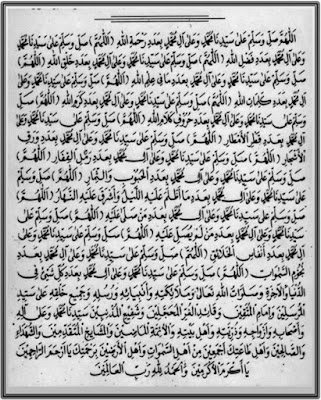 اللهم صل وسلم على سيدنا محمد وعلى آل محمد بعدد رحمة الله (اللهم) صل وسلم على سيدنا محمد
وعلى آل محمد بعدد فضل الله (اللهم) صل وسلم على سيدنا محمد وعلى آل محمد بعدد خلق الله (اللهم)
صل وسلم على سيدنا محمد وعلى آل محمد بعدد ما في علم الله (اللهم) صل وسلم على سيدنا محمد وعلى
آل محمد بعدد كلمات الله (اللهم) صل وسلم على سيدنا محمد وعلى آل محمد بعدد كرم الله (اللهم) صل
وسلم على سيدنا محمد وعلى آل محمد بعدد حروف كلام الله (اللهم) صل وسلم على سيدنا محمد وعلى
آل محمد بعدد قطر الأمطار (اللهم) صل وسلم على سيدنا محمد وعلى آل محمد بعدد ورق
الأشجار (اللهم) صل وسلم على سيدنا محمد وعلى آل محمد بعدد رمل القفار (اللهم)
صل وسلم على سيدنا محمد وعلى آل محمد بعدد الحبوب والثمار (اللهم) صل وسلم
على سيدنا محمد وعلى آل محمد بعدد ما أظلم عليه الليل وأشرق عليه النهار (اللهم)
صل وسلم على سيدنا محمد وعلى آل محمد بعدد من صلى عليه (اللهم) صل وسلم على
سيدنا محمد وعلى آل محمد بعدد من لم يصل عليه (اللهم) صل وسلم على سيدنا محمد وعلى
آل محمد بعدد أنفاس الخلائق (اللهم) صل وسلم على سيدنا محمد وعلى آل محمد بعدد
نجوم السموات (اللهم) صل وسلم على سيدنا محمد وعلى آل محمد بعدد كل شيء في
الدنيا والآخرة وصلوات الله تعالى وملائكته وأنبيائه ورسله وجميع خلقه على سيد
المرسلين وإمام المتقين وقائد الغر المحجلين وشفيع المذنبين سيدنا محمد وعلى آله
وأصحابه وأزواجه وذريته وأهل بيته والأئمة الماضين والمشايخ المتقدمين والشهداء
والصالحين وأهل طاعتك أجمعين من أهل السموات وأهل الأرضين برحمتك يا أرحم الراحمين
يا أكرم الأكرمين والحمد لله رب العالمين